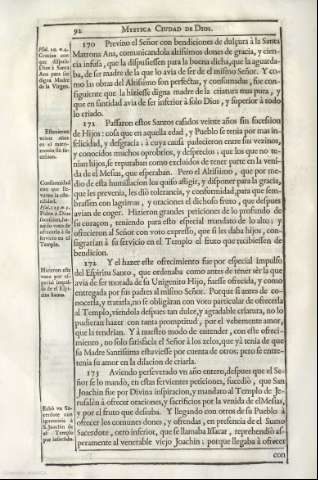 92 MYSTICA CIUDAD DE DIOS.
170 Previno el Señor con bendiciones de dulçura à la Santa
Matrona Ana, comunicandola altissimos dones de gracia, y cien-
cia infusa, que la dispusiessen para la buena dicha, que la aguarda-
ba, de ser madre de la que lo avia de ser de el mismo Señor. Y co-
mo las obras del Altissimo son perfectas, y consumadas, fue con-
siguiente que la hiziesse digna madre de la criatura mas pura, y
que en santidad avia de ser inferior à solo Dios, y superior à todo
lo criado.
171 Passaron estos Santos casados veinte años sin sucession
de Hijos: cosa que en aquella edad, y Pueblo se tenia por mas in-
felicidad, y desgracia; à cuya causa padecieron entre sus vezinos,
y conocidos muchos oprobrios, y desprecios; que los que no te-
nian hijos, se reputaban como excluidos de tener parte en la veni-
da de el Mesias, que esperaban. Pero el Altissimo, que por me-
dio de esta humillacion los quiso afligir, y disponer para la gracia,
que les prevenia, les diò tolerancia, y conformidad, para que sem-
brassen con lagrimas, y oraciones el dichoso fruto, que despues
avian de coger. Hizieron grandes peticiones de lo profundo de
su coraçon, teniendo para esto especial mandato de lo alto; y
ofrecieron al Señor con voto expresso, que si les daba hijos, con-
sagrarian à su servicio en el Templo el fruto que recibiessen de
bendicion.
172 Y el hazer este ofrecimiento fue por especial impulso
del Espiritu Santo, que ordenaba como antes de tener sèr la que
avia de ser morada de su Unigenito Hijo, fuesse ofrecida, y como
entregada por sus padres al mismo Señor. Porque si antes de co-
nocerla, y tratarla, no se obligàran con voto particular de ofrecerla
al Templo, viendola despues tan dulce, y agradable criatura, no lo
pudieran hazer con tanta promptitud, por el vehemente amor,
que la tendrian. Y à nuestro modo de entender, con este ofreci-
miento, no solo satisfacia el Señor à los zelos, que yà tenia de que
su Madre Santissima estuviesse por cuenta de otros; pero se entre-
tenia su amor en la dilacion de criarla.
173 Aviendo perseverado vn año entero, despues que el Se-
ñor se lo mandò, en estas fervientes peticiones, sucediò, que San
Joachin fue por Divina inspiracion, y mandato al Templo de Je-
rusalèn à ofrecer oraciones, y sacrificios por la venida de el Mesias,
y por el fruto que deseaba. Y llegando con otros de su Pueblo à
ofrecer los comunes dones, y ofrendas, en presencia de el Sumo
Sacerdote, otro inferior, que se llamaba Issacar, reprehendiò as-
peramente al venerable viejo Joachin; porque llegaba à ofrecer
con
Psal. 20. v. 4.
Gracias con
que dispuso
Dios à Santa
Ana para ser
digna Madre
de la Virgen.
Estuvieron
veinte años
en el matri-
monio sin su-
cession.
Conformidad
Templo.